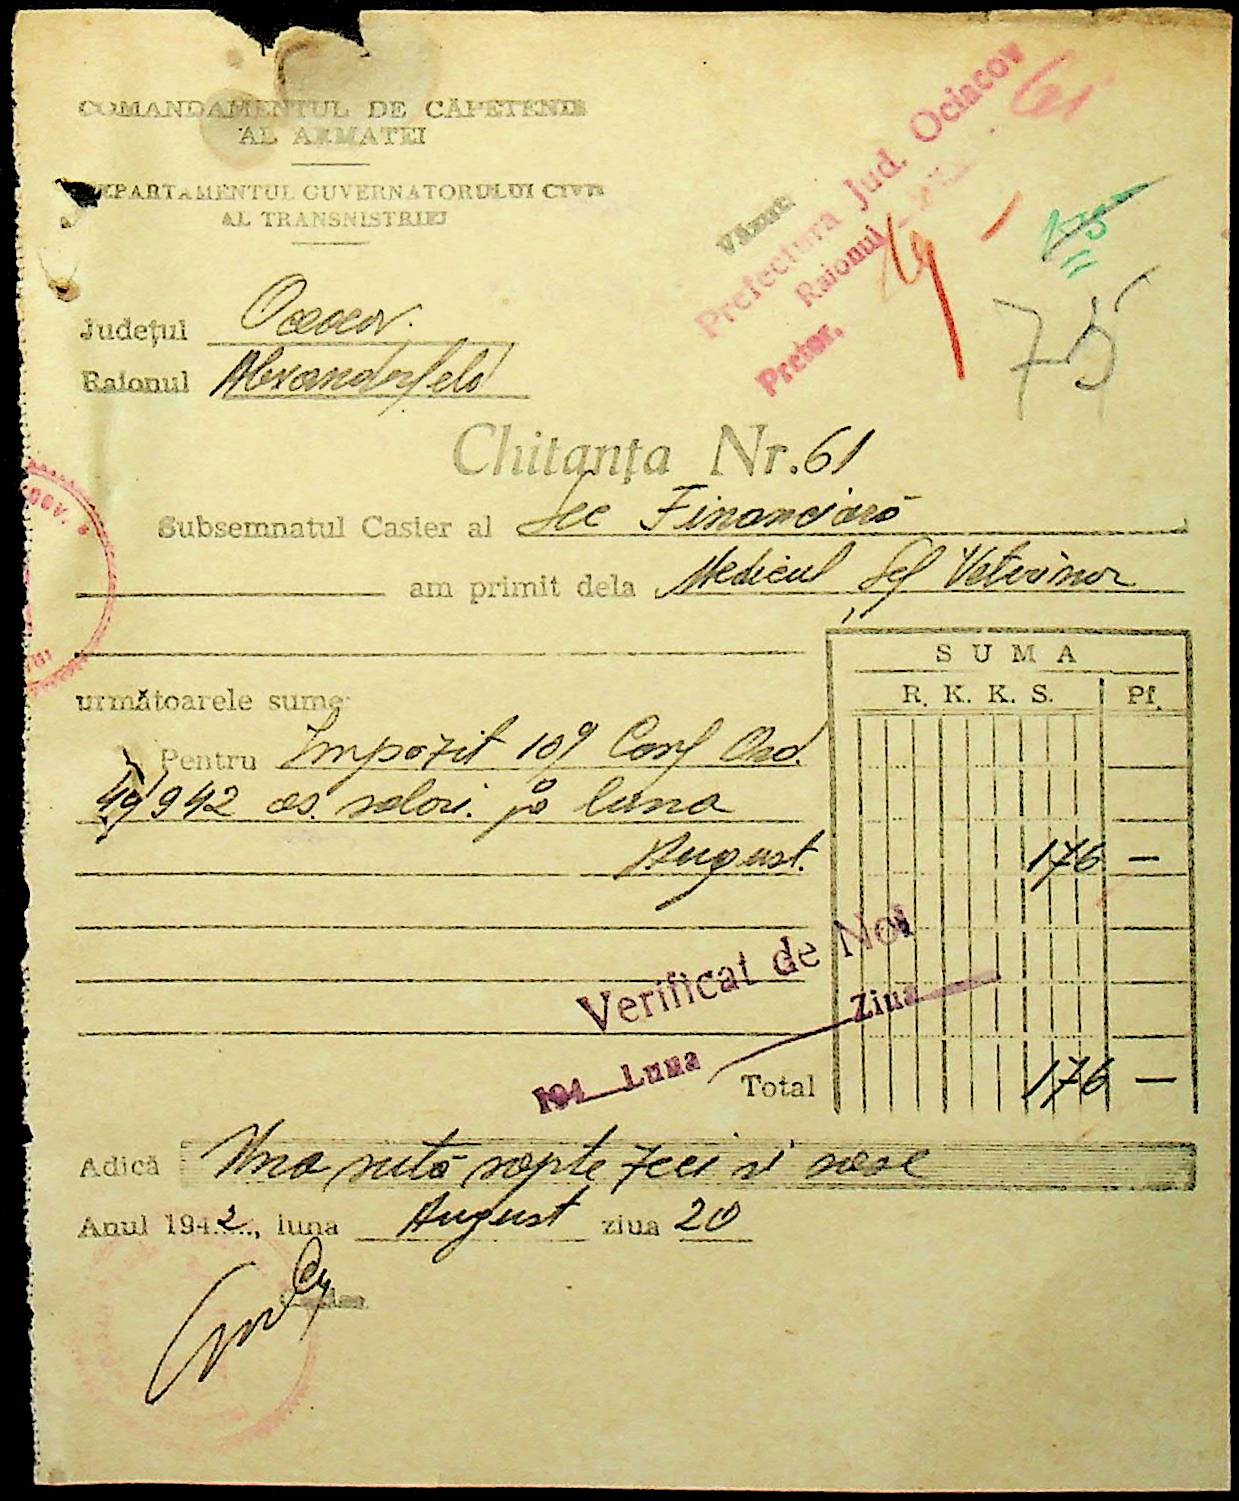 COMANDAMENTUL DE CĂPETENIE
AL ARMATEI
DEPARTAMENTUL GUVERNATORULUI CIVIL
AL TRANSNISTRIEI
Văzut:
Prefectura Jud. Ociacov
Raionul
Pretor,
61
19
75
75
Județul Oceacov.
Raionul Alexanderfeld
Chitanța Nr. 61
Subsemnatul Casier al Sec Financiară
am primit dela Medicul Șef Veterinar
următoarele sume:
SUMA
R. K. K. S. Pf.
Pentru Impozit 10% Conf Ord.
49/942 as. salar. pe luna
August. 176 —
Verificat de Noi
194 Luna Ziua
Total 176 —
Adică Una sută șapte zeci și șase
Anul 1942, luna August ziua 20
Casier